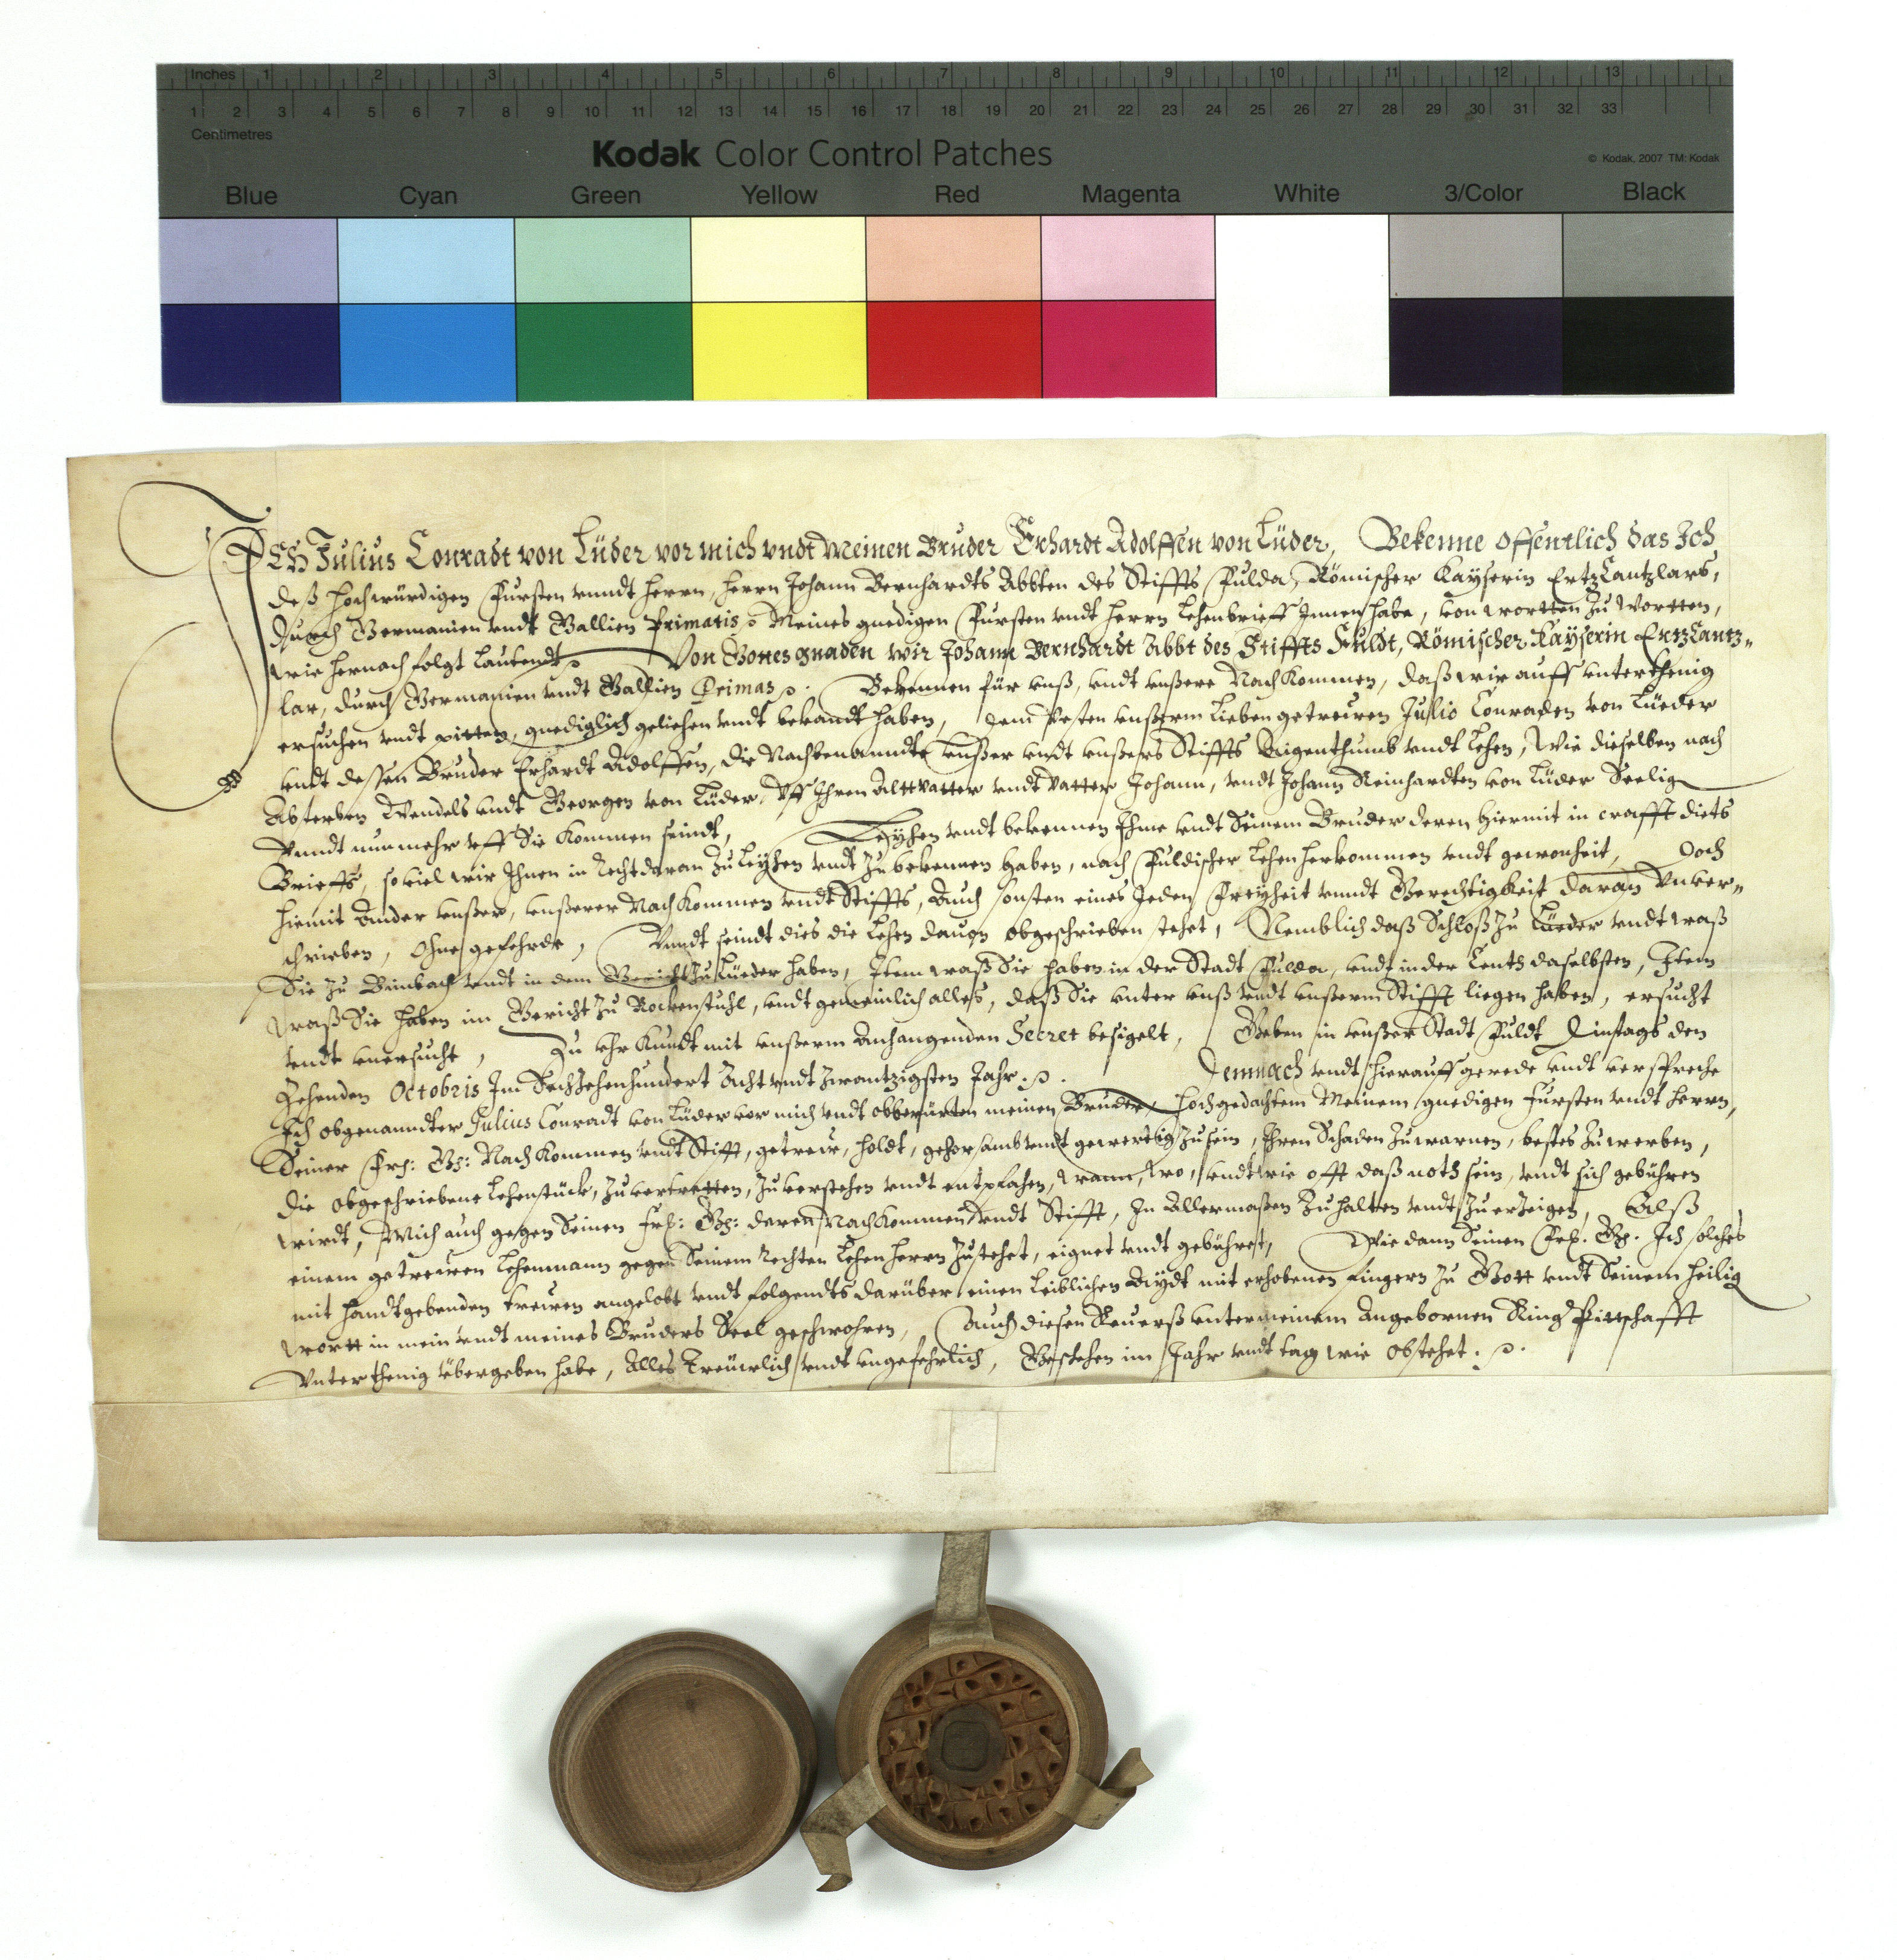 Inches 1 2 3 4 5 6 7 8 9 10 11 12 13
1 2 3 4 5 6 7 8 9 10 11 12 13 14 15 16 17 18 19 20 21 22 23 24 25 26 27 28 29 30 31 32 33
Centimetres
Kodak Color Control Patches
© Kodak, 2007 TM: Kodak
Blue Cyan Green Yellow Red Magenta White 3/Color Black
ICH Julius Conradt von Lüder vor mich vndt Meinen Bruder Erhardt Adolffen von Lüder, Bekenne offentlich das Ich
deß hochwürdigen Fursten vnndt herrn, herrn Johann Bernhardts Abbten des Stiffts Fulda, Römischer Kayserin ErtzCantzlars,
durch Germanien vndt Gallien Primatis Meines gnedigen Fursten vndt herrn Lehenbrieff Innen habe, von wortten zu Wortten,
wie hernach folgt lautendt Von Gottes gnaden Wir Johann Bernhardt Abbt des Stiffts Fuldt, Römischer Kayserin ErtzCantz„
lar, durch Germanien vndt Gallien Primas Bekennen für vnß, vndt vnßere NachKommen, daß wir auff vnterthenig
ersuchen vndt pitten, gnediglich geliehen vndt bekandt haben, dem Vesten vnßerm Lieben getrewen Julio Conraden von Lüeder
vndt dessen Bruder Erhardt Adolffen, die Nachbenanndte vnßer vndt vnßers Stiffts Aigenthumb vndt Lehen, Wie dieselben nach
Absterben Wendels vndt Georgen von Lüder, Vff Ihren Altvatter vndt Vatter Johann, vndt Johann Reinhardten von Lüder Seelig
Vnndt nunmehr vff Sie Kommen seindt, Leyhen vndt bekennen Ihme vndt Seinem Bruder deren hiermit in crafft diets
Brieffs, so viel wir Ihnen in Recht daran zu Leyhen vndt zu bekennen haben, nach Fuldischer Lehen herkommen vndt gewonheit, Doch
hiemit Ander vnßer, vnßerer NachKommen vndt Stiffts, Auch sonsten eines Jeden Freyheit vnndt Gerechtigkeit daran Vnver„
schrieben, Ohne gefehrde, Vnndt seindt dies die Lehen dauon obgeschrieben stehet, Nemblich daß Schloß zu Lüeder vndt waß
Sie zu Bimbach vndt in dem Gericht zu Lüeder haben, Item waß Sie haben in der Stadt Fulda, vndt in der Centh daselbsten, Item
waß Sie haben im Gericht zu Rockenstuhl, vndt gemeinlich alles, daß Sie vnter vnß vndt vnßerm Stifft liegen haben, ersucht
vndt vnersucht, Zu vhrKundt mit vnßerm Anhangenden Secret besigelt, Geben in vnßer Stadt Fuldt Dinstags den
Zehenden Octobris Im Sechzehenhundert Acht vndt Zwantzigsten Jahr. Demnach vndt hierauff gerede vndt verspreche
Ich obgenanndter Julius Conradt von Lüder vor mich vndt obberürten meinen Bruder, hochgedachtem Meinem gnedigen Fursten vndt herrn,
Seiner Frl: Gn: NachKommen vndt Stifft, getrew, holdt, gehorsamb vndt gewertig zu sein, Ihren Schaden Zuwarnen, bestes Zuwerben,
die obgeschriebene Lehenstück, Zu vertretten, Zu verstehen vndt entpfahen, wann, wo, vndt wie offt daß noth sein, vndt sich gebühren
wirdt, Mich auch gegen Seinen Frl: Gn: deren NachKommen vndt Stifft, In Allermaßen Zu halten vndt Zu erzeigen, Alß
einem getrewen Lehenmann gegen Seinem rechten Lehen herrn Zustehet, eignet vndt gebühret, Wie dann Seinen Frl. Gn. Ich solches
mit handtgebenden trewen angelobt vndt folgendts darüber einen Leiblichen Aydt mit erhobenen fingern zu Gott vndt Seinem heilig
wortt in mein vndt meines Bruders Seel geschwohren, Auch diesen Reuerß vnter meinem Angebornen Ring Pittschafft
Vnterthenig übergeben habe, Alles Treüwlich vndt vngefehrlich, Geschehen im Jahr vndt tag wie obstehet.